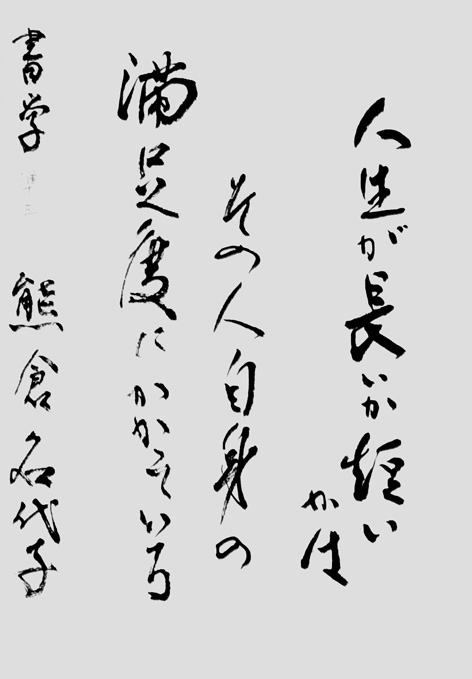 人生が長いか短い
かは
その人自身の
満足度にかかっている
書学
熊倉名代子